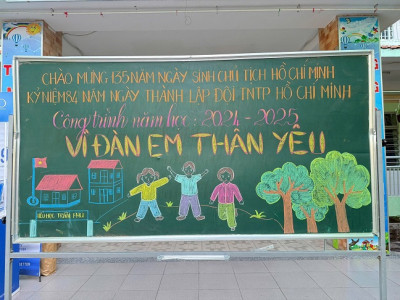 CHÀO MỪNG 135 NĂM NGÀY SINH CHỦ TỊCH HỒ CHÍ MINH
KỶ NIỆM 84 NĂM NGÀY THÀNH LẬP ĐỘI TNTP HỒ CHÍ MINH
Công trình năm học : 2024 - 2025
VÌ ĐÀN EM THÂN YÊU
TIỂU HỌC TRẦN PHÚ